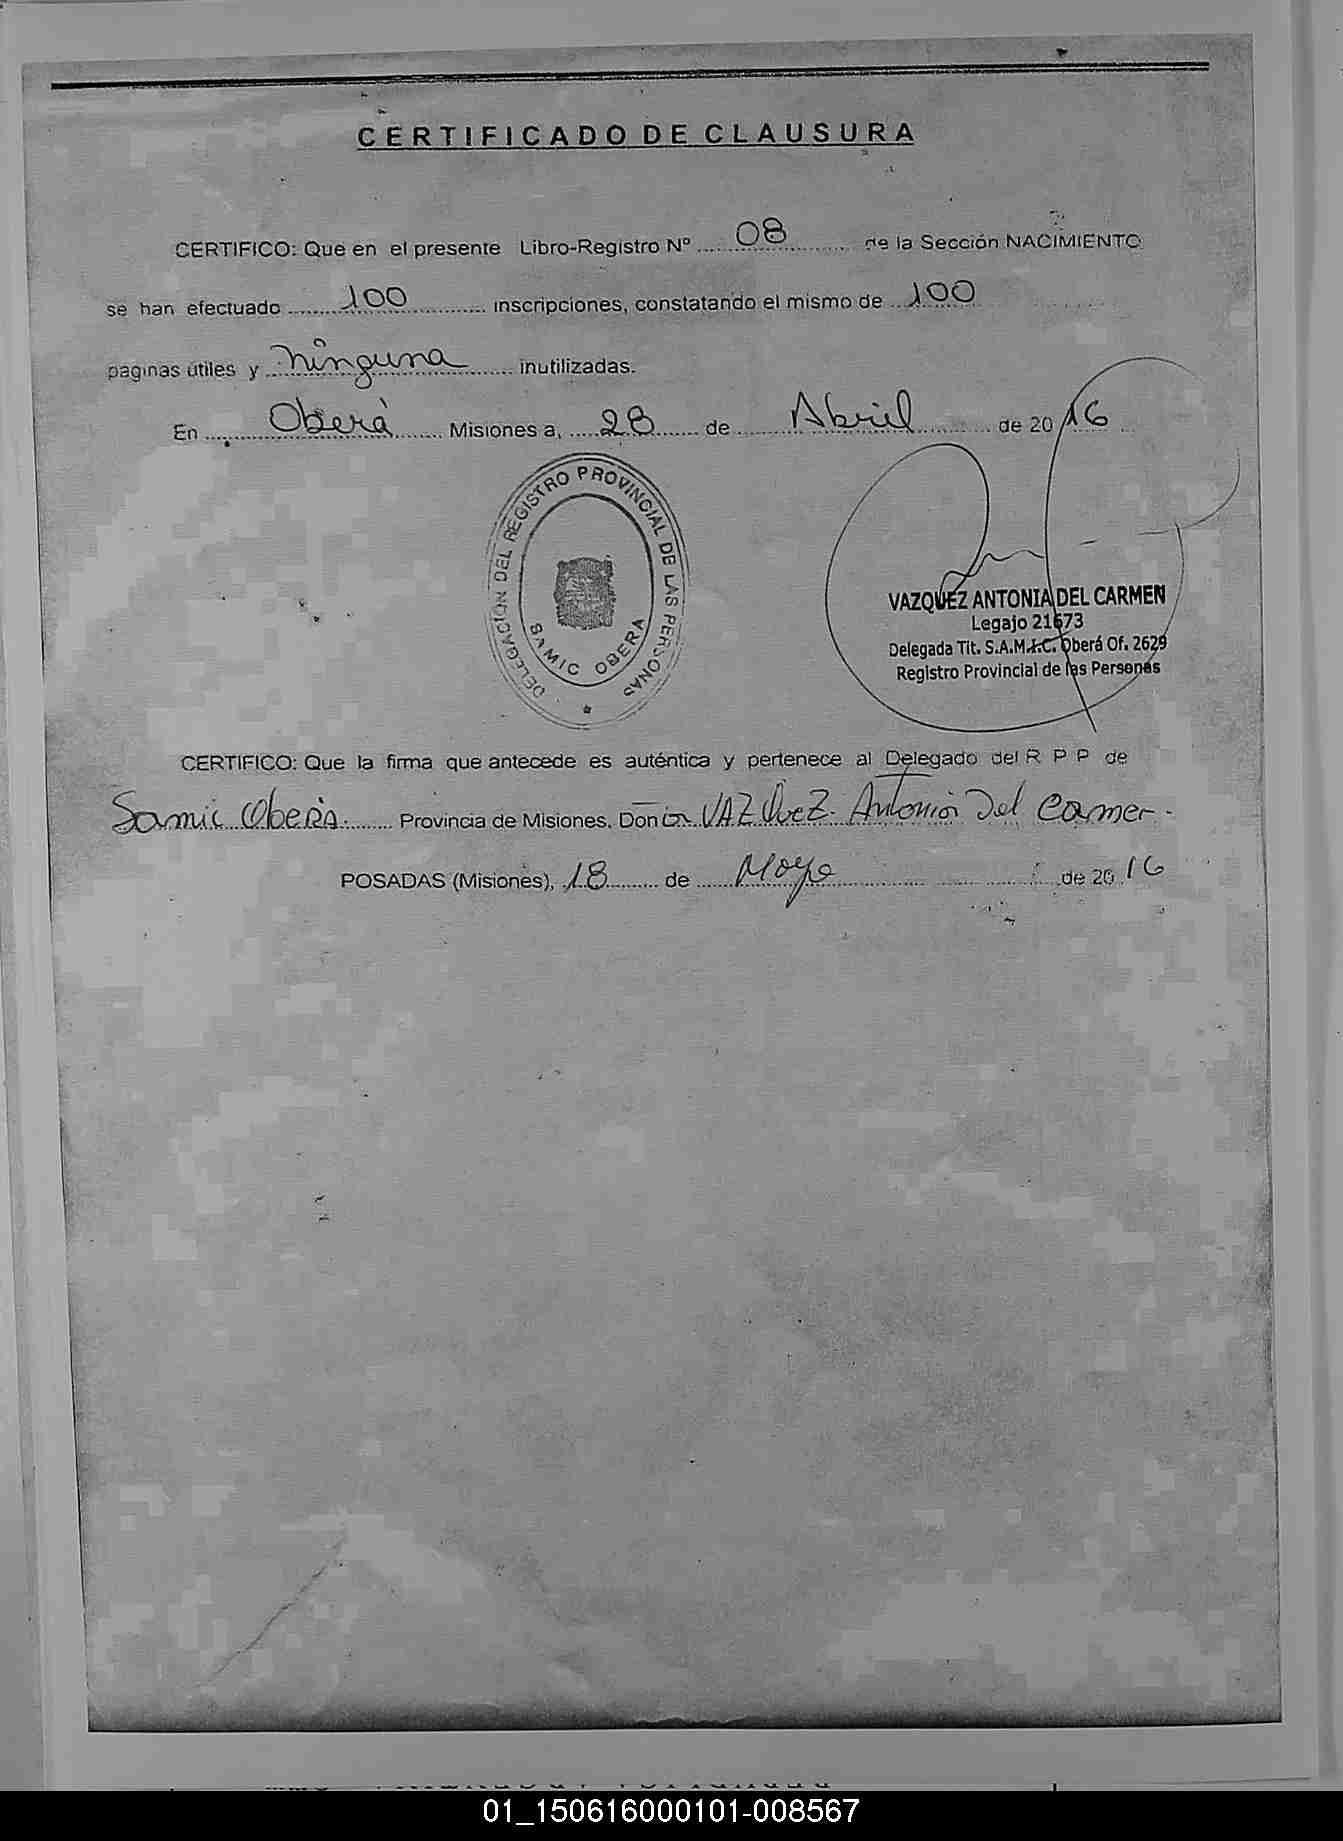 CERTIFICADO DE CLAUSURA
CERTIFICO: Que en el presente Libro-Registro Nº ....08.... de la Sección NACIMIENTO
se han efectuado ....100.... inscripciones, constatando el mismo de ..100
paginas útiles y ..ninguna.... inutilizadas.
En .... Oberá .... Misiones a, ....28.... de .... Abril .... de 2016
DELEGACION DEL REGISTRO PROVINCIAL DE LAS PERSONAS
SAMIC OBERA
VAZQUEZ ANTONIA DEL CARMEN
Legajo 21673
Delegada Tit. S.A.M.I.C. Oberá Of. 2629
Registro Provincial de las Personas
CERTIFICO: Que la firma que antecede es auténtica y pertenece al Delegado del R P P de
Samic Oberá.... Provincia de Misiones, Don ia VAZQuEZ. Antonia Del Carmen.
POSADAS (Misiones), .18.... de .... Mayo .... de 2016
01_150616000101-008567